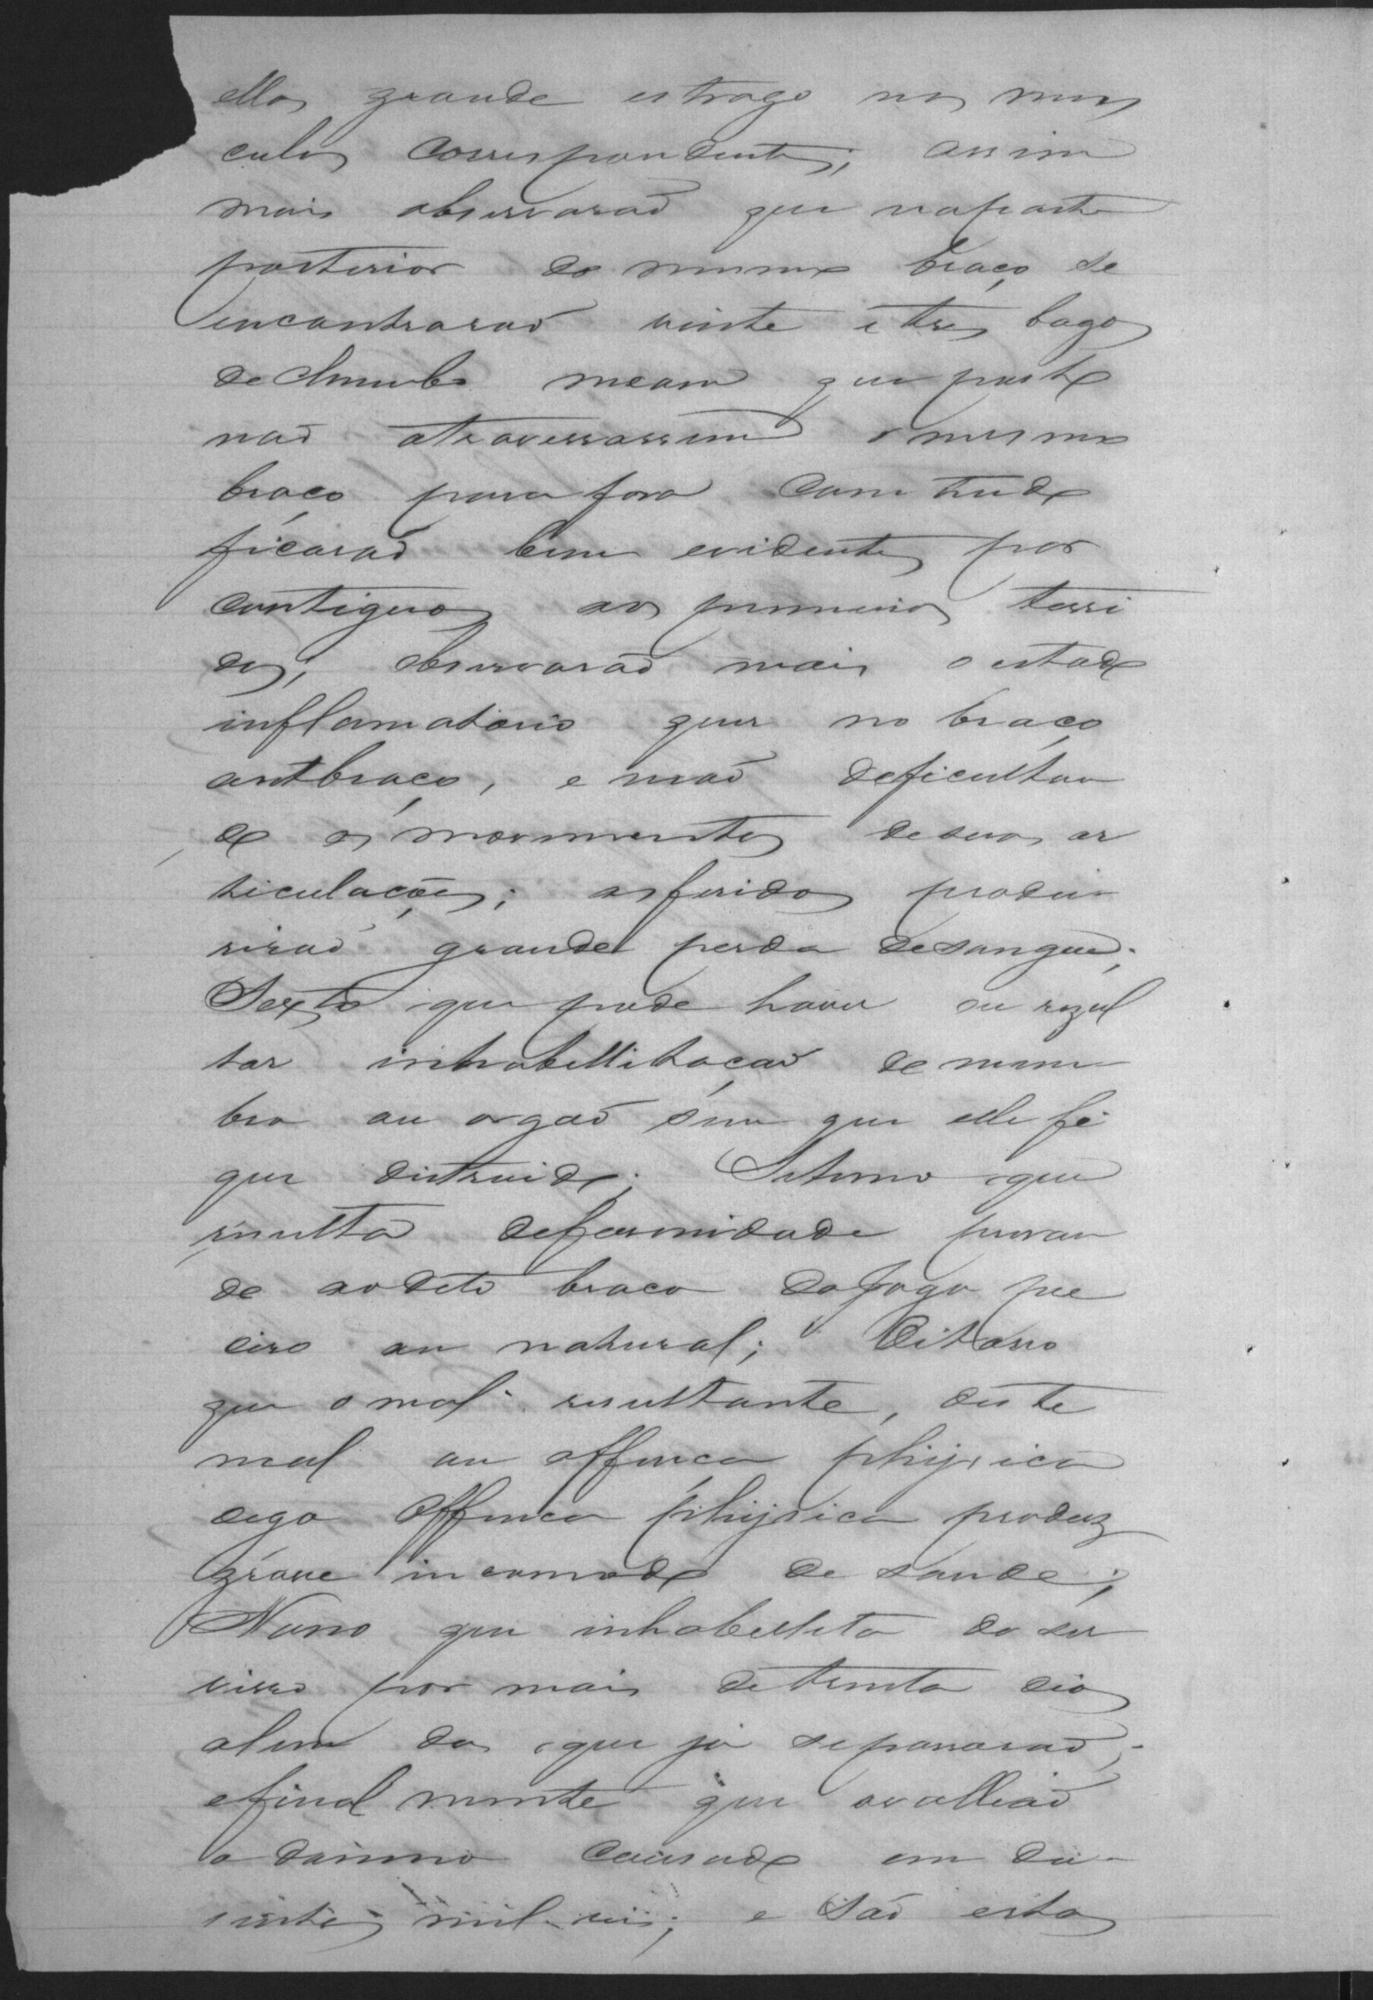 ellas grande estrago nos mus
culos correspondentes; assim
mais observaraõ que naparte
posterior do mesmo braço se
encontraraõ vinte etres bagos
dechumbo
naõ atravessassem omesmo
braço para fora com tudo
ficaraõ bem evidentes por
contiguos aos primeiros terri
dos; observaraõ mais oestado
inflamatorio quer no braço
antbraço, e maõ deficultan
do os movimentos desuas ar
ticulações; asferidas produ
siraõ grande perda desangue;
Sexto que pode haver ou rezul
tar inhabellitaçaõ de mem
bro ou orgaõ sem que elle fi
que distruido; Setimo que
resulta deformidade privan
do aodito braço dojogo pre
ciso ou natural; Oitavo
que omal resultante, deste
mal ou offença phijsica
digo offença phijsica produz
grave incomodo de saude;
Nono que inhabellita do ser
visso por mais detrinta dias
alem dos que já sepassaraõ;
efinal mente que avalliaõ
o damno causado em du
sentos mil reis; e saõ estas